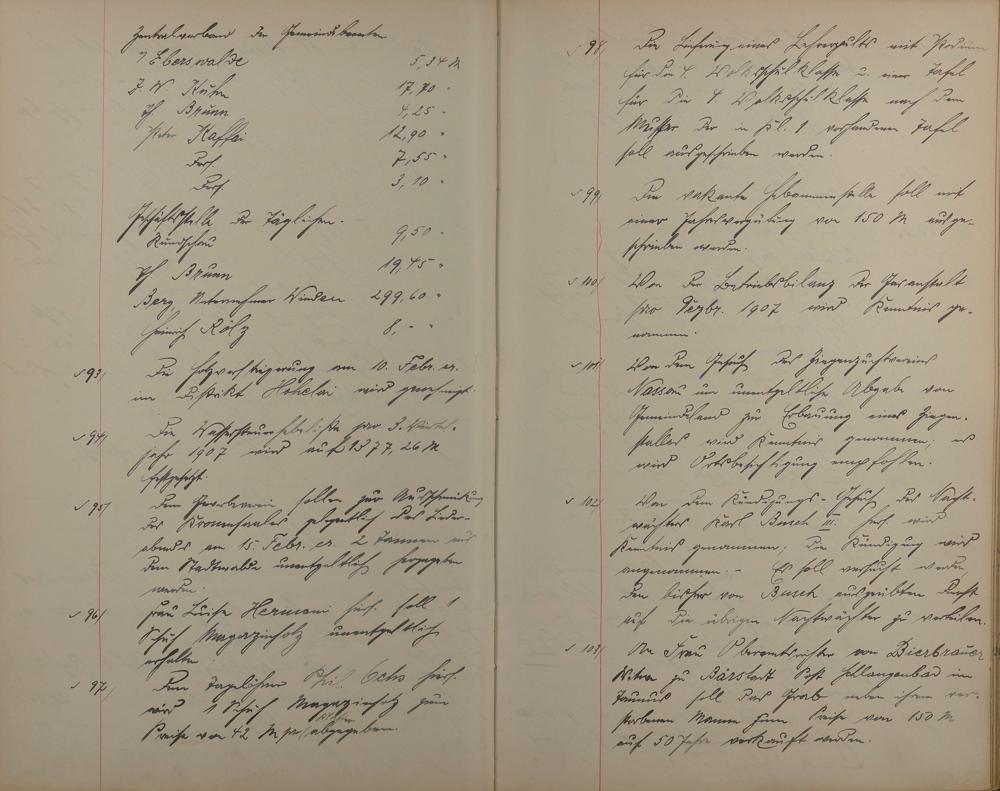 Zentralverband der Gemeindebeamten
" Eberswalde 5,34 M
J. W. Kuhn 17,70 "
Ph. Brunn 4,25 "
Peter Kaffai 12,90 "
Ders. 7,55 "
Ders. 3,10 "
Geschäftsstelle der Täglichen
Rundschau 9,50 "
Ph. Brunn 19,45 "
Berg, Unternehmer Winden 299,60 "
Heinrich Rölz 8,- "
§ 93/ Die Holzversteigerung am 10. Febr. cr.
im Distrikt Hohelai wird genehmigt.
§ 94/ Die Wassersteuerhebeliste pro 3. Viertel-
jahr 1907 wird auf 1377,26 M
festgesetzt.
§ 95/ Dem Gewerbeverein sollen zur Ausschmückung
des Kronensaales gelegentlich des Lieder-
abends am 15. Febr. cr. 2 Tannen aus
dem Stadtwalde unentgeltlich hergegeben
werden.
§ 96/ Frau Luise Hermani hier soll 1
Schuh Magazinholz unentgeltlich
erhalten
§ 97/ Dem Tagelöhner Phil. Ochs hier
wird 1 Schuh Magazinholz zum
Preise von 42 M abgegeben.
§ 98/ Die Lieferung eines Lehrerpults mit Podium
für die 4. Volksschulklasse u. einer Tafel
für die 4. Volksschulklasse nach dem
Muster der in Kl. 1 vorhandenen Tafel
soll ausgeschrieben werden.
§ 99/ Die vakante Hebammenstelle soll mit
einer Jahresvergütung von 150 M ausge-
schrieben werden.
§ 100/ Von der Betriebsbilanz der Gasanstalt
pro Dezbr. 1907 wird Kenntnis ge-
nommen.
§ 101/ Von dem Gesuch des Ziegenzuchtvereins
Nassau um unentgeltliche Abgabe von
Gemeindeland zur Erbauung eines Ziegen-
stalles wird Kenntnis genommen; es
wird Ortsbesichtigung empfohlen.
§ 102/ Von dem Kündigungs-Gesuch des Nacht-
wächters Karl Busch III. hier wird
Kenntnis genommen; die Kündigung wird
angenommen. - Es soll versucht werden,
den bisher von Busch ausgeübten Dienst
auf die übrigen Nachtwächter zu verteilen.
§ 103/ An Frau Oberamtsrichter von Bierbrauer
Witwe zu Bärstadt Post Schlangenbad im
Taunus soll das Grab neben ihrem ver-
storbenen Manne zum Preise von 150 M
auf 50 Jahre verkauft werden.